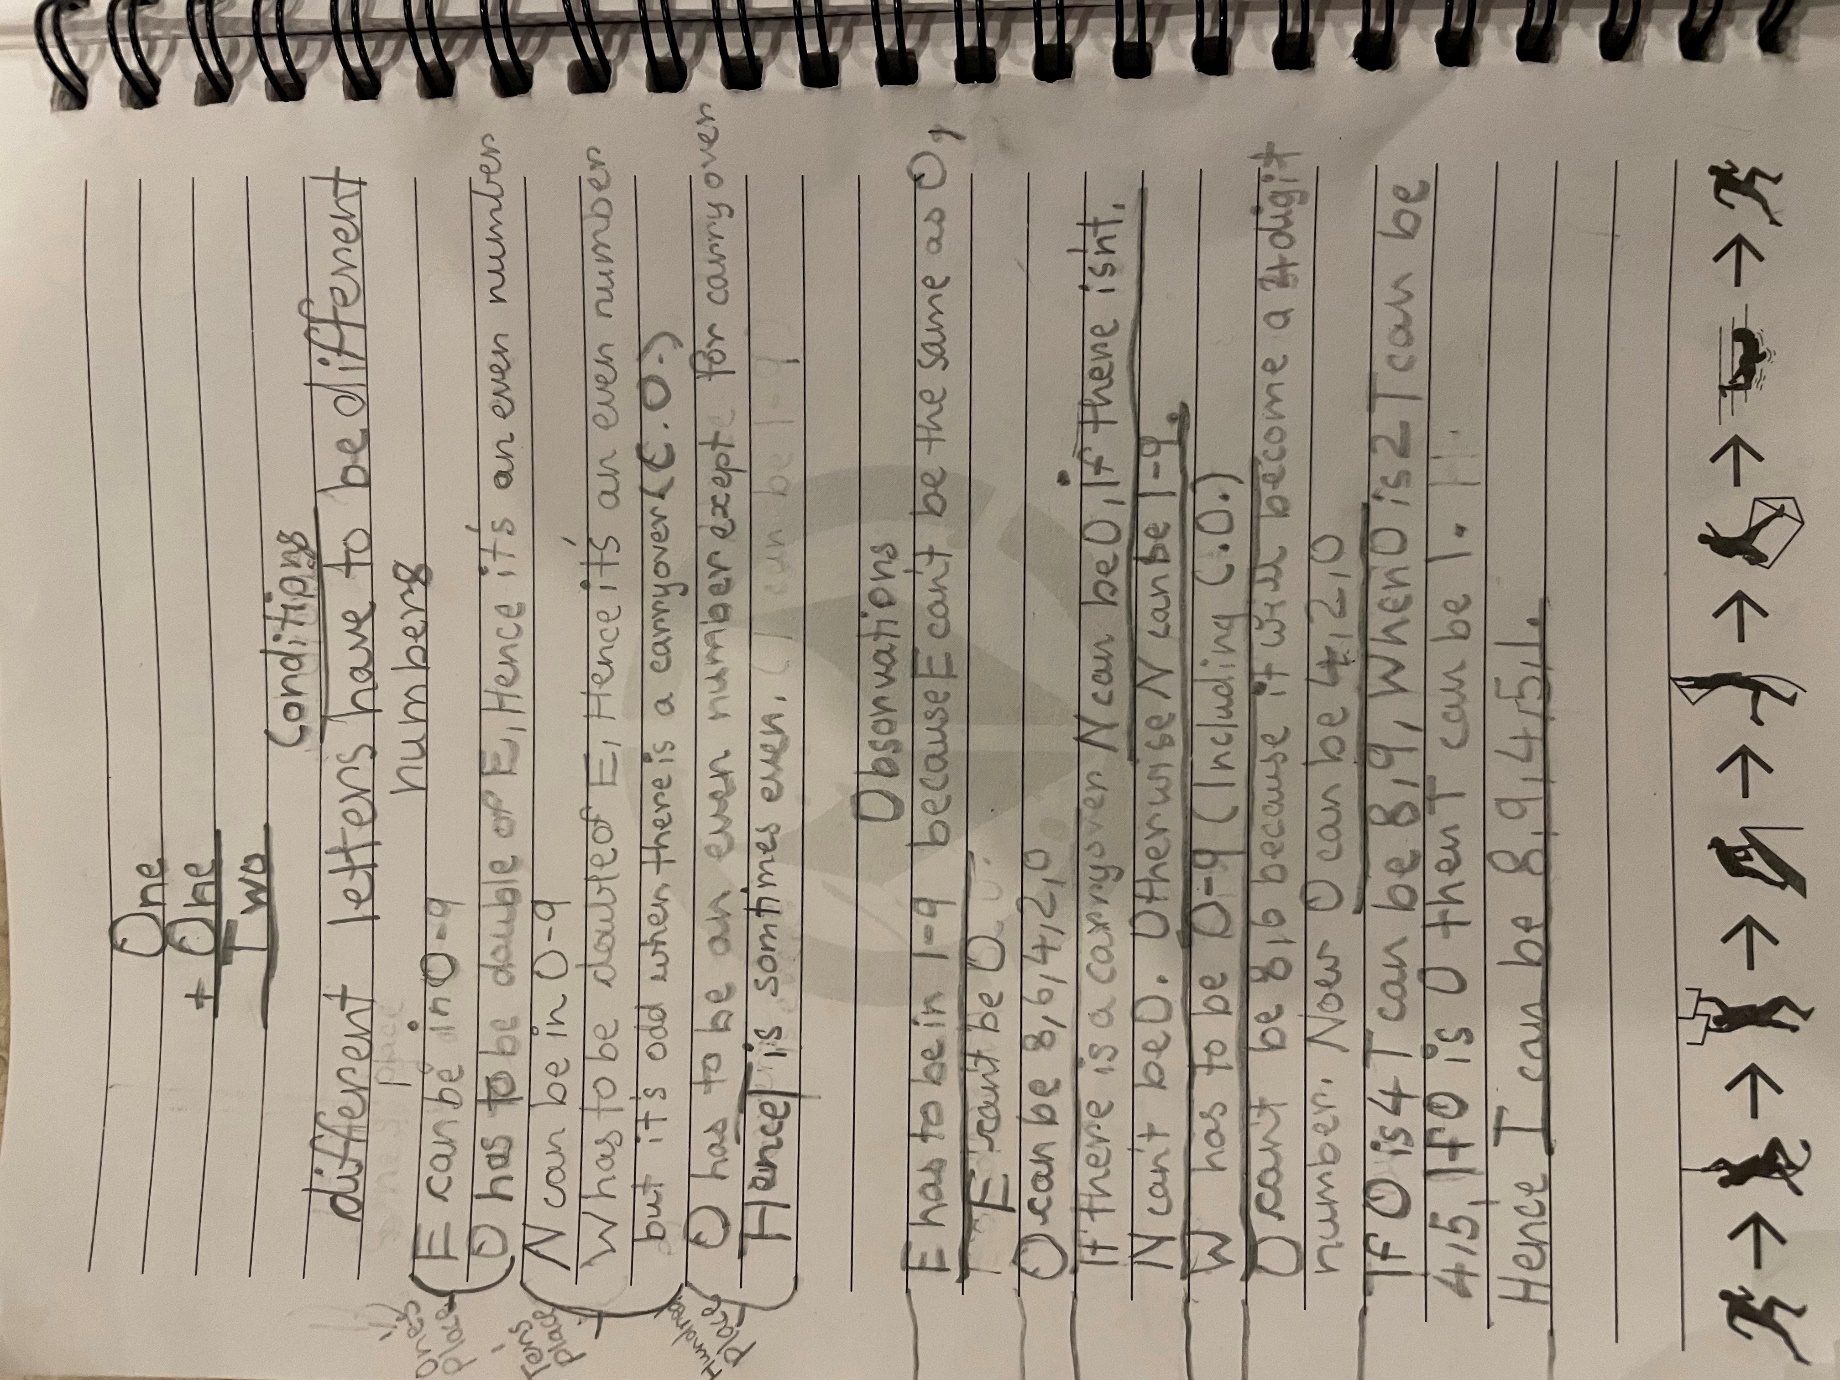 One
+ One
Two
Conditions
different letters have to be different
numbers
Ones Place
E can be in 0-9
O has to be double of E, Hence it's an even number
Tens Place
N can be in 0-9
W has to be double of E, Hence it's an even number
but it's odd when there is a carryover (C.O.)
Hundred Place
O has to be an even number except for carry over
Hence T is somtimes even. can be 1-9
Obsorvations
E has to be in 1-9 because E can't be the same as O,
E can't be 0.
O can be 8,6,4,2,0
If there is a carryover N can be 0, If there isnt,
N can't be 0. Otherwise N can be 1-9.
W has to be 0-9 (Including C.O.)
O can't be 8,6 because it will become a 4 digit
number. Now O can be 4,2,0
If O is 4 T can be 8,9, When O is 2 T can be
4,5, If O is 0 then T can be 1.
Hence T can be 8,9,4,5,1.